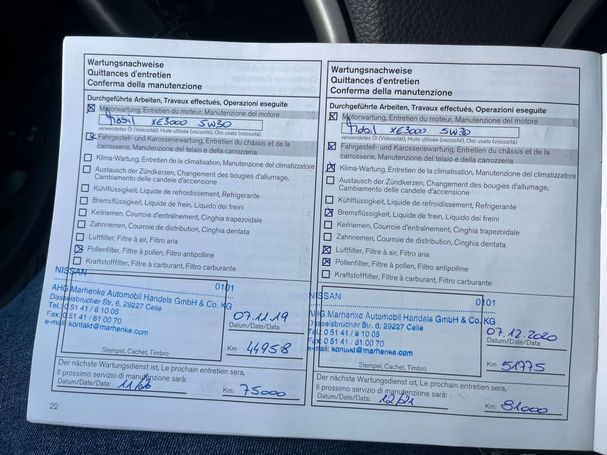 Wartungsnachweise
Quittances d'entretien
Conferma della manutenzione
Durchgeführte Arbeiten, Travaux effectués, Operazioni eseguite
Motorwartung, Entretien du moteur, Manutenzione del motore
Mobil XE3000 5W30
verwendetes Öl (Viskosität), Huile utilisée (viscosité), Olio usato (viscosità)
Fahrgestell- und Karosseriewartung, Entretien du châssis et de la
carrosserie, Manutenzione del telaio e della carrozzeria
Klima-Wartung, Entretien de la climatisation, Manutenzione del climatizzatore
Austausch der Zündkerzen, Changement des bougies d'allumage,
Cambiamento delle candele d'accensione
Kühlflüssigkeit, Liquide de refroidissement, Refrigerante
Bremsflüssigkeit, Liquide de frein, Liquido dei freini
Keilriemen, Courroie d'entraînement, Cinghia trapezoidale
Zahnriemen, Courroie de distribution, Cinghia dentata
Luftfilter, Filtre à air, Filtro aria
Pollenfilter, Filtre à pollen, Filtro antipolline
Kraftstofffilter, Filtre à carburant, Filtro carburante
NISSAN 0101
AHG Marhenke Automobil Handels GmbH & Co. KG
Dasselsbrucher Str. 6, 29227 Celle
Tel.: 0 51 41 / 8 10 05
Fax: 0 51 41 / 81 00 70
e-mail: kontakt@marhenke.com
07.11.19
Datum/Date/Data
Km: 44958
Stempel, Cachet, Timbro
Der nächste Wartungsdienst ist, Le prochain entretien sera,
Il prossimo servizio di manutenzione sarà:
Datum/Date/Data:
Km: 75000
22
Wartungsnachweise
Quittances d'entretien
Conferma della manutenzione
Durchgeführte Arbeiten, Travaux effectués, Operazioni eseguite
Motorwartung, Entretien du moteur, Manutenzione del motore
Mobil XE3000 5W30
verwendetes Öl (Viskosität), Huile utilisée (viscosité), Olio usato (viscosità)
Fahrgestell- und Karosseriewartung, Entretien du châssis et de la
carrosserie, Manutenzione del telaio e della carrozzeria
Klima-Wartung, Entretien de la climatisation, Manutenzione del climatizzatore
Austausch der Zündkerzen, Changement des bougies d'allumage,
Cambiamento delle candele d'accensione
Kühlflüssigkeit, Liquide de refroidissement, Refrigerante
Bremsflüssigkeit, Liquide de frein, Liquido dei freini
Keilriemen, Courroie d'entraînement, Cinghia trapezoidale
Zahnriemen, Courroie de distribution, Cinghia dentata
Luftfilter, Filtre à air, Filtro aria
Pollenfilter, Filtre à pollen, Filtro antipolline
Kraftstofffilter, Filtre à carburant, Filtro carburante
NISSAN 0101
AHG Marhenke Automobil Handels GmbH & Co. KG
Dasselsbrucher Str. 6, 29227 Celle
Tel.: 0 51 41 / 8 10 05
Fax: 0 51 41 / 81 00 70
e-mail: kontakt@marhenke.com
07.12.2020
Datum/Date/Data
Km: 51975
Stempel, Cachet, Timbro
Der nächste Wartungsdienst ist, Le prochain entretien sera,
Il prossimo servizio di manutenzione sarà:
Datum/Date/Data: 12/21
Km: 81000